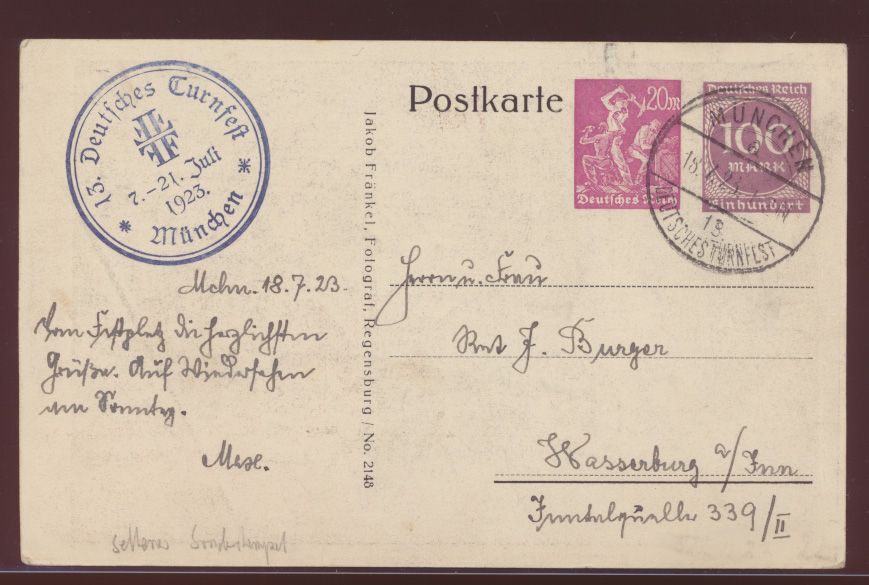 13. Deutsches Turnfest
7.-21. Juli
1923.
* München *
Mchn. 18.7.23.
Vom Festplatz die herzlichsten
Grüße. Auf Wiedersehen
am Sonntag.
Max.
seltener Sonderstempel
Jakob Fränkel, Fotograf, Regensburg / No. 2148
Postkarte
20m
Deutsches Reich
Deutsches Reich
100
MARK
Einhundert
MÜNCHEN
18.7.23.
13.
DEUTSCHES TURNFEST
Herrn u. Frau
J. Burger
Wasserburg a/Inn
339/II